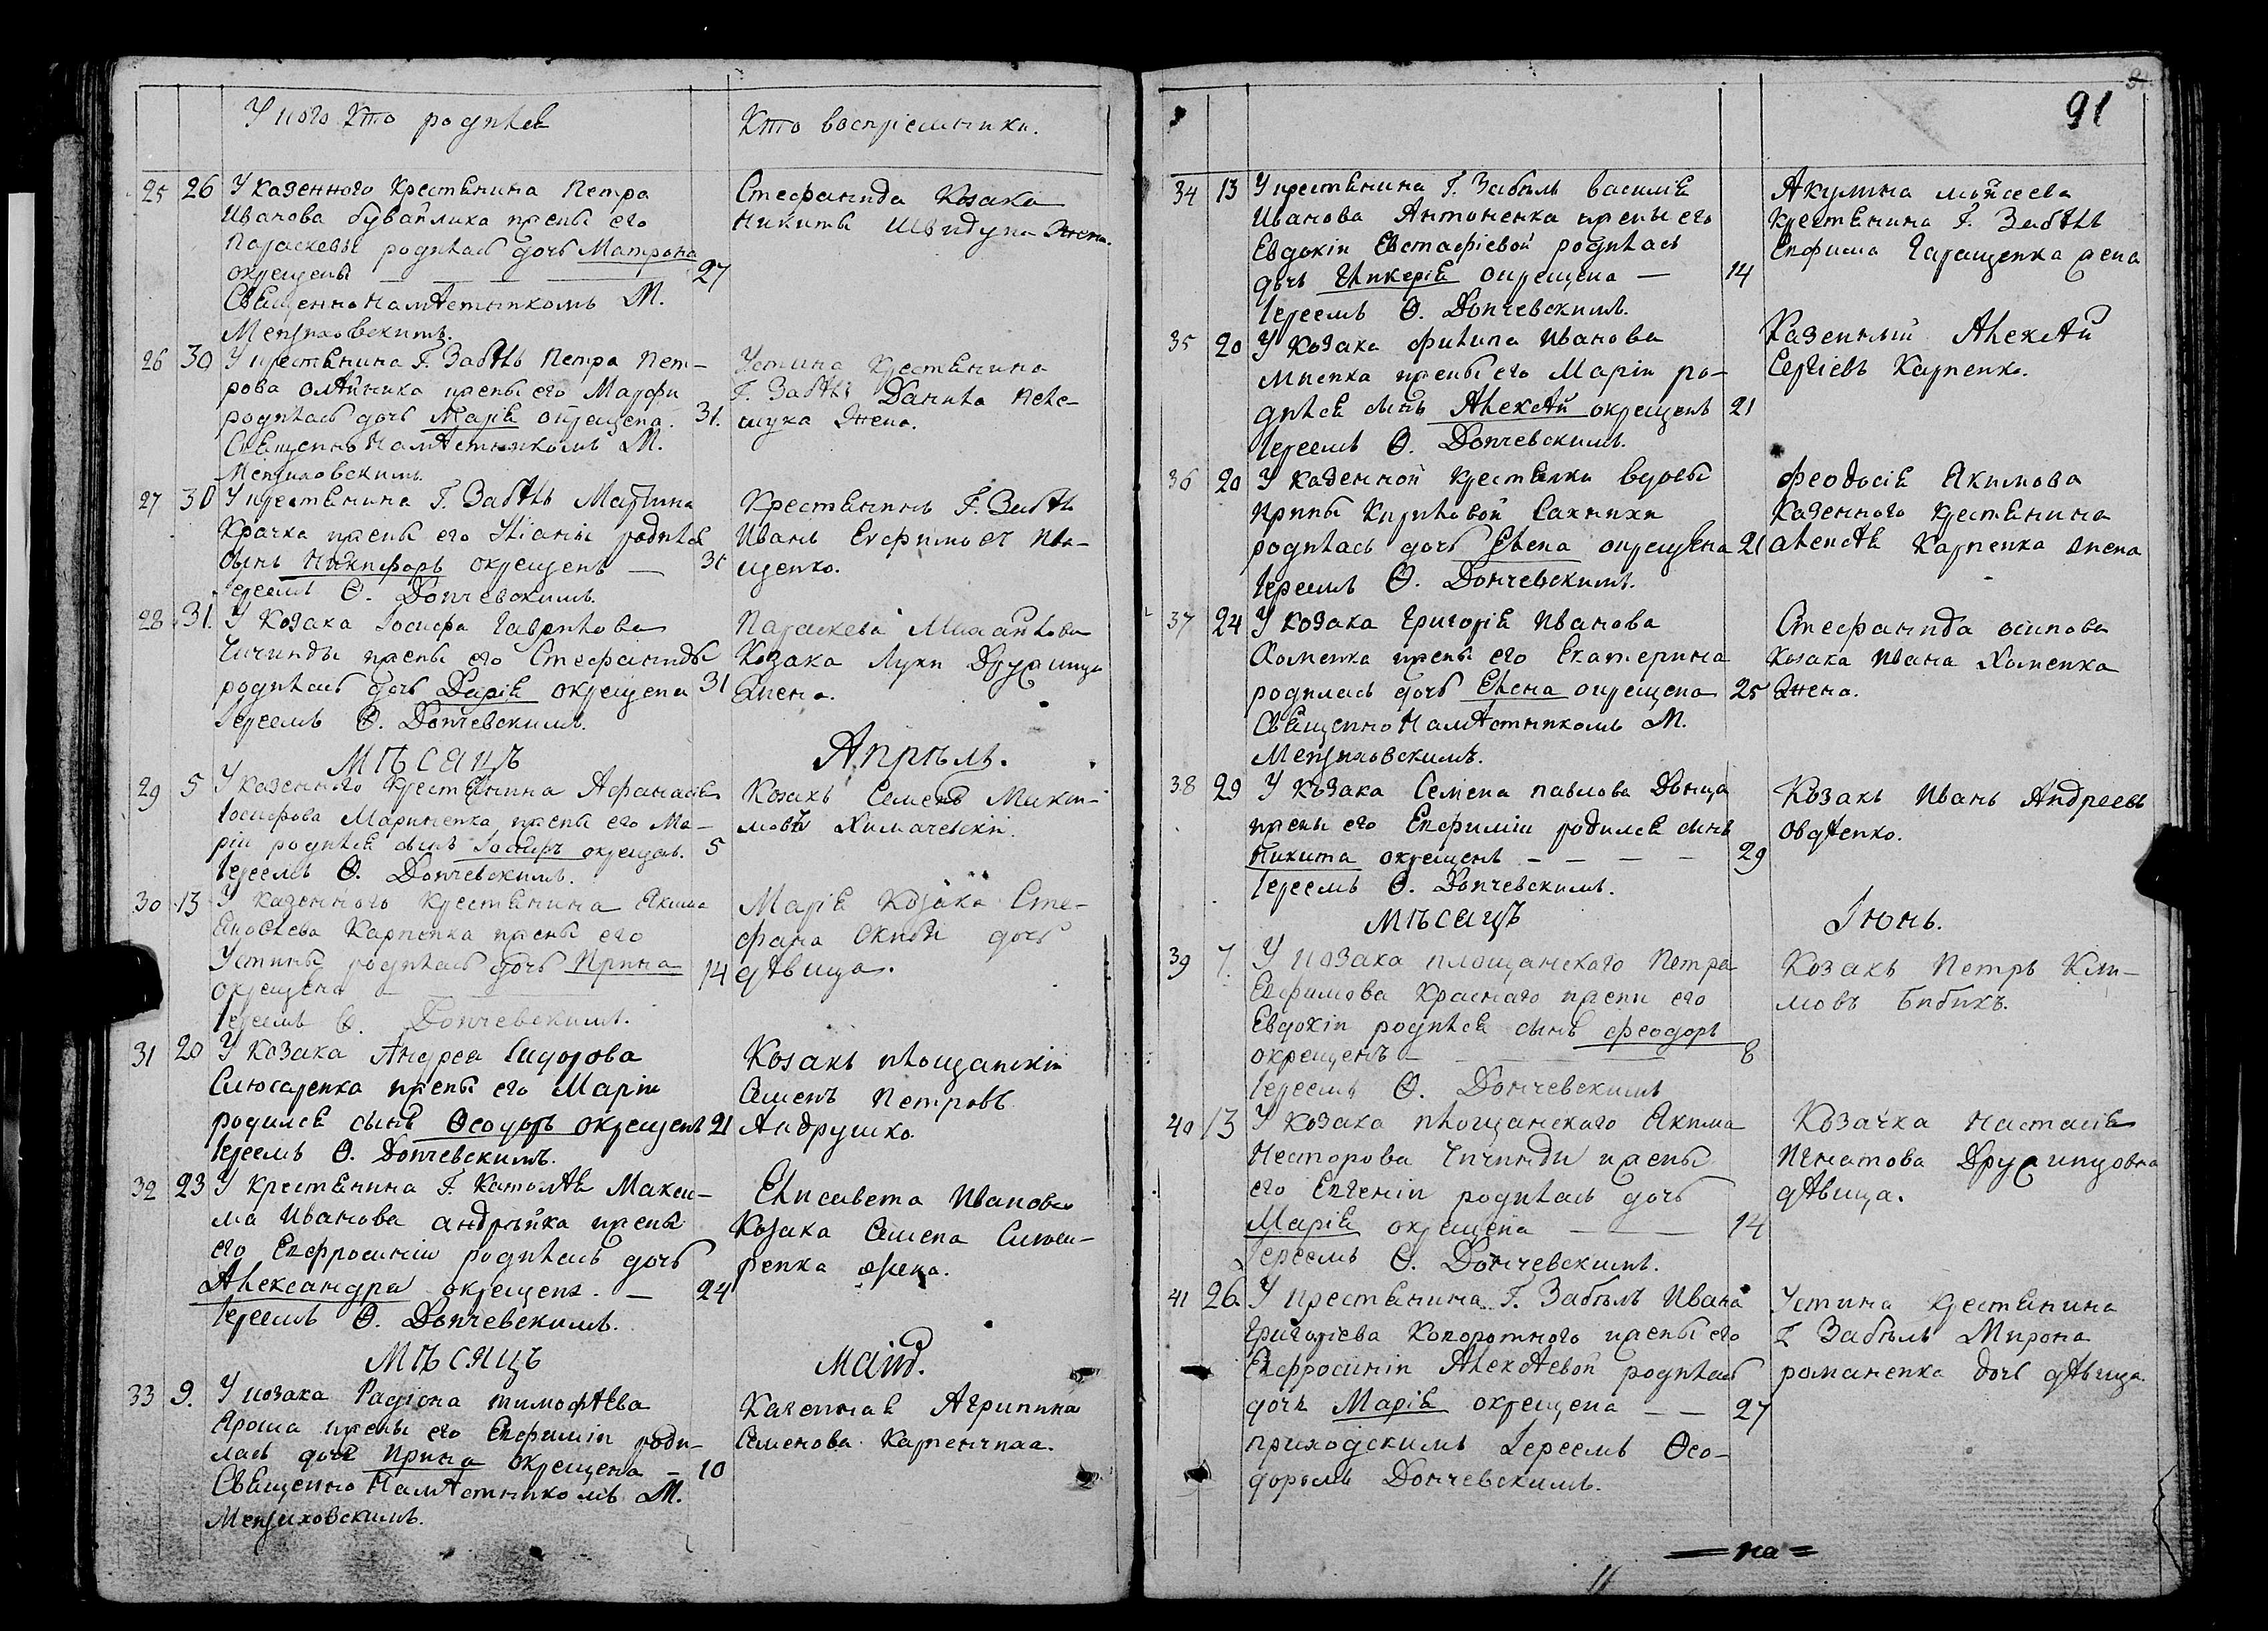 У кого кто родился
Кто восприемники.
25 26 У казенного крестянина Петра
Иванова Бувайлика жены его
Параскевы родилась дочь Матрона
окрещены — — — 27
Священнонамѣстникомъ М.
Менжиховскимъ.
Стефанида козака
Никиты Швидуна жена.
26 30 У крестянина Г. Забѣлъ Петра Пет-
рова Олѣйника жены его Марфи
родилась дочь Марія окрещена. 31.
Священнонамѣстникомъ М.
Менжиховскимъ.
Устина крестянина
Г. Забѣлъ Данила Пеле-
шука жена.
27 30 У крестянина Г. Забѣлъ Мартина
Крачка жены его Уліаны родился
сынъ Никифоръ окрещенъ — 31
Іереемъ Ѳ. Дончевскимъ.
Крестянинъ Г. Забѣлъ
Иванъ Евфимовъ Ива-
щенко.
28 31. У козака Іосифа Гаврилова
Чичинды жены его Стефаниды
родилась дочь Дарія окрещена 31
Іереемъ Ѳ. Дончевскимъ.
Параскева Михайлова
козака Луки Дружинца
жена.
Мѣсяцъ Апрѣль.
29 5 У казенного крестянина Афанасія
Іосифова Мариненка жены его Ма-
ріи родился сынъ Іосифъ окрещенъ. 5
Іереемъ Ѳ. Дончевскимъ.
Козакъ Семенъ Макси-
мовъ Химачевскій.
30 13 У казенного крестянина Якима
Яковлева Карпенка жены его
Устины родилась дочь Ирина 14
окрещена —
Іереемъ Ѳ. Дончевскимъ.
Марія козака Сте-
фана дочь
дѣвица.
31 20 У козака Андрея Сидорова
Слюсаренка жены его Маріи
родился сынъ Ѳеодоръ окрещенъ 21
Іереемъ Ѳ. Дончевскимъ.
Козакъ площанскій
Семенъ Петровъ
Андрушко.
32 23 У крестянина Г. Максі-
ма Иванова Андрѣйка жены
его Евфросиніи родилась дочь
Александра окрещена. — 24
Іереемъ Ѳ. Дончевскимъ.
Елисавета Иванова
козака Семена Слюса-
ренка жена.
Мѣсяцъ Маій.
33 9. У козака Радіона Тимофѣева
Яроша жены его Евфиміи роди-
лась дочь Ирина окрещена — 10
Священнонамѣстникомъ М.
Менжиховскимъ.
Казенная Агрипина
Семенова Карпенчиха.
91
34 13 У крестянина Г. Забѣлъ Василія
Иванова Антоненка жены его
Евдокіи Евстафіевой родилась
дочь Гликерія окрещена — 14
Іереемъ Ѳ. Дончевскимъ.
Акулина Мойсеева
крестянина Г. Забѣлъ
Евфима Гаращенка жена
35 20 У козака Филипа Иванова
жены его Маріи ро-
дился сынъ Алексѣй окрещенъ 21
Іереемъ Ѳ. Дончевскимъ.
Казенный Алексѣй
Сергіевъ Карпенко.
36 20 У казенной крестянки вдовы
Ирины Кириловой Сахнихи
родилась дочь Елена окрещена 21
Іереемъ Ѳ. Дончевскимъ.
Феодосія Якимова
казенного крестянина
Алексѣя Карпенка жена
37 24 У козака Григорія Иванова
Хоменка жены его Екатерина
родилась дочь Елена окрещена 25
Священнонамѣстникомъ М.
Менжиховскимъ.
Стефанида Осипова
козака Ивана Хоменка
жена.
38 29 У козака Семена Павлова Донца
жены его Евфиміи родился сынъ
Никита окрещенъ — — — — 29
Іереемъ Ѳ. Дончевскимъ.
Козакъ Иванъ Андреевъ
Овдѣенко.
Мѣсяцъ Іюнь.
39 7. У козака площанского Петра
Евфимова Красного жены его
Евдокіи родился сынъ Феодоръ
окрещенъ — 8
Іереемъ Ѳ. Дончевскимъ
Козакъ Петръ Кли-
мовъ Бибикъ.
40 13 У козака площанского Якима
Несторова Чичинди жены
его Евгеніи родилась дочь
Марія окрещена — — 14
Іереемъ Ѳ. Дончевскимъ.
Козачка Настасія
Игнатова Дружинцовна
дѣвица.
41 26. У крестянина Г. Забѣлъ Ивана
Григоріева Коворотного жены его
Евфросиніи Алексѣевой родилась
дочь Марія окрещена — — 27
приходскимъ Іереемъ Ѳео-
доромъ Дончевскимъ.
Устина крестянина
Г Забѣлъ Мирона
Романенка дочь дѣвица.
= на =